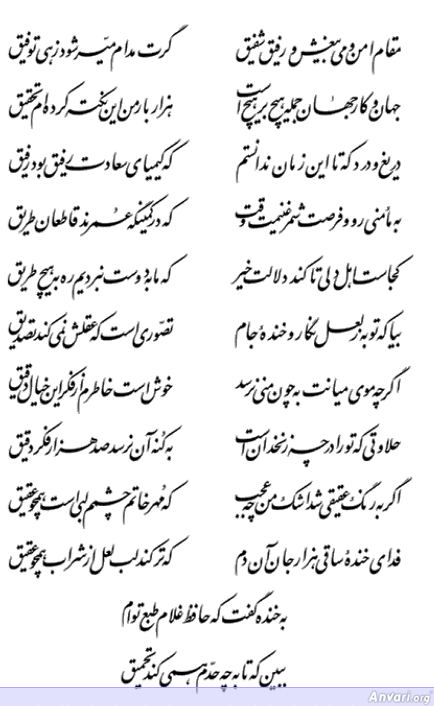 مقام امن و می بیغش و رفیق شفیق	گرت مدام میسر شود زهی توفیق
جهان و کار جهان جمله هیچ بر هیچ است	هزار بار من این نکته کرده‌ام تحقیق
دریغ و درد که تا این زمان ندانستم	که کیمیای سعادت رفیق بود رفیق
به مأمنی رو و فرصت شمر غنیمت وقت	که در کمینگه عمرند قاطعان طریق
کجاست اهل دلی تا کند دلالت خیر	که ما به دوست نبردیم ره به هیچ طریق
بیا که توبه ز لعل نگار و خندهٔ جام	تصوری است که عقلش نمی کند تصدیق
اگرچه موی میانت به چون منی نرسد	خوش است خاطرم از فکر این خیال دقیق
حلاوتی که تو را در چه زنخدان است	به کنه آن نرسد صد هزار فکر دقیق
اگر به رنگ عقیقی شد اشک من چه عجب	که مهر خاتم چشم لبی است همچو عقیق
فدای خندهٔ ساقی هزار جان آن دم	که تر کند لب لعل از شراب همچو عقیق
به خنده گفت که حافظ غلام طبع توام
ببین که تا به چه حدم همی کند تحمیق
Anvari.org